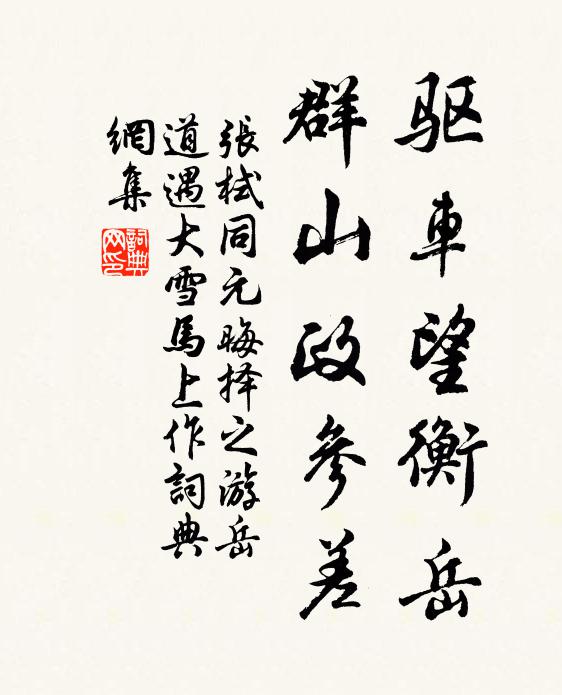 驱車望衡岳
群山政參差
張栻同元晦择之游岳
道遇大雪馬上作詞典
網集
詞典
网印